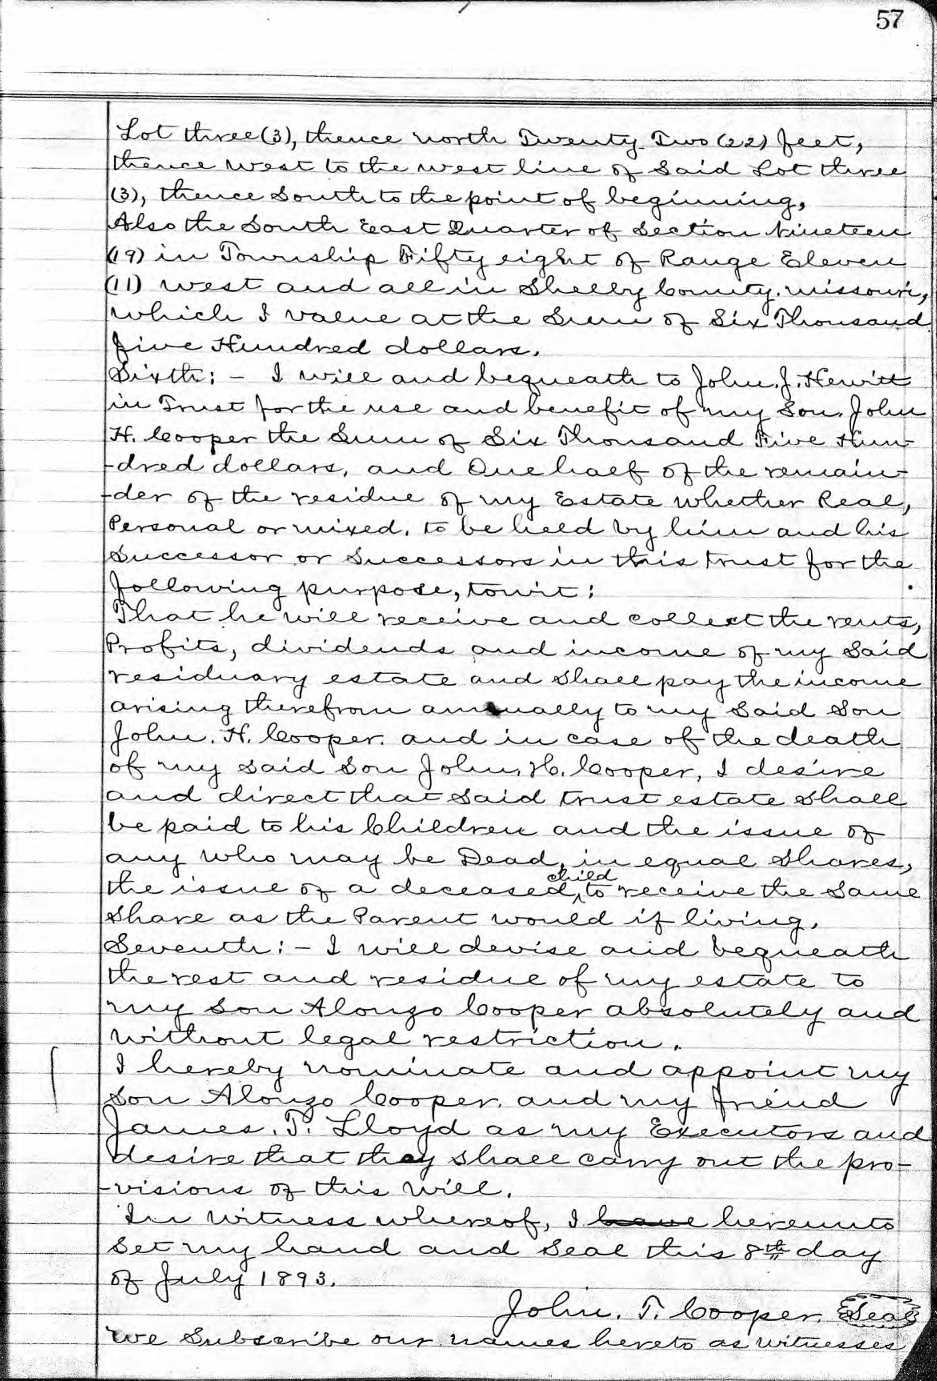 57
Lot three (3), thence north Twenty Two (22) feet,
thence west to the west line of Said Lot three
(3), thence South to the point of beginning,
Also the South East Quarter of Section Nineteen
(19) in Township Fifty eight of Range Eleven
(11) west and all in Shelby County. Missouri,
which I value at the Sum of Six Thousand
five Hundred dollars.
Sixth: - I will and bequeath to John. J. Hewitt
in Trust for the use and benefit of my Son. John
H. Cooper the Sum of Six Thousand Five Hun-
-dred dollars. and One half of the remain-
-der of the residue of my Estate whether Real,
Personal or mixed. to be held by him and his
Successor or Successors in this trust for the
following purpose, towit:
That he will receive and collect the rents,
Profits, dividends and income of my Said
residuary estate and Shall pay the income
arising therefrom annually to my Said Son
John. H. Cooper. and in case of the death
of my said Son John. H. Cooper, I desire
and direct that Said trust estate Shall
be paid to his Children and the issue of
any who may be Dead, in equal Shares,
the issue of a deceased child to receive the Same
Share as the Parent would if living.
Seventh: - I will devise and bequeath
the rest and residue of my estate to
my Son Alonzo Cooper absolutely and
without legal restriction.
I hereby nominate and appoint my
Son Alonzo Cooper. and my friend
James. T. Lloyd as my Executors and
desire that they Shall carry out the pro-
-visions of this Will.
In Witness whereof, I have hereunto
Set my hand and Seal this 8th day
of July 1893.
John. T. Cooper. Seal
We Subscribe our names hereto as witnesses